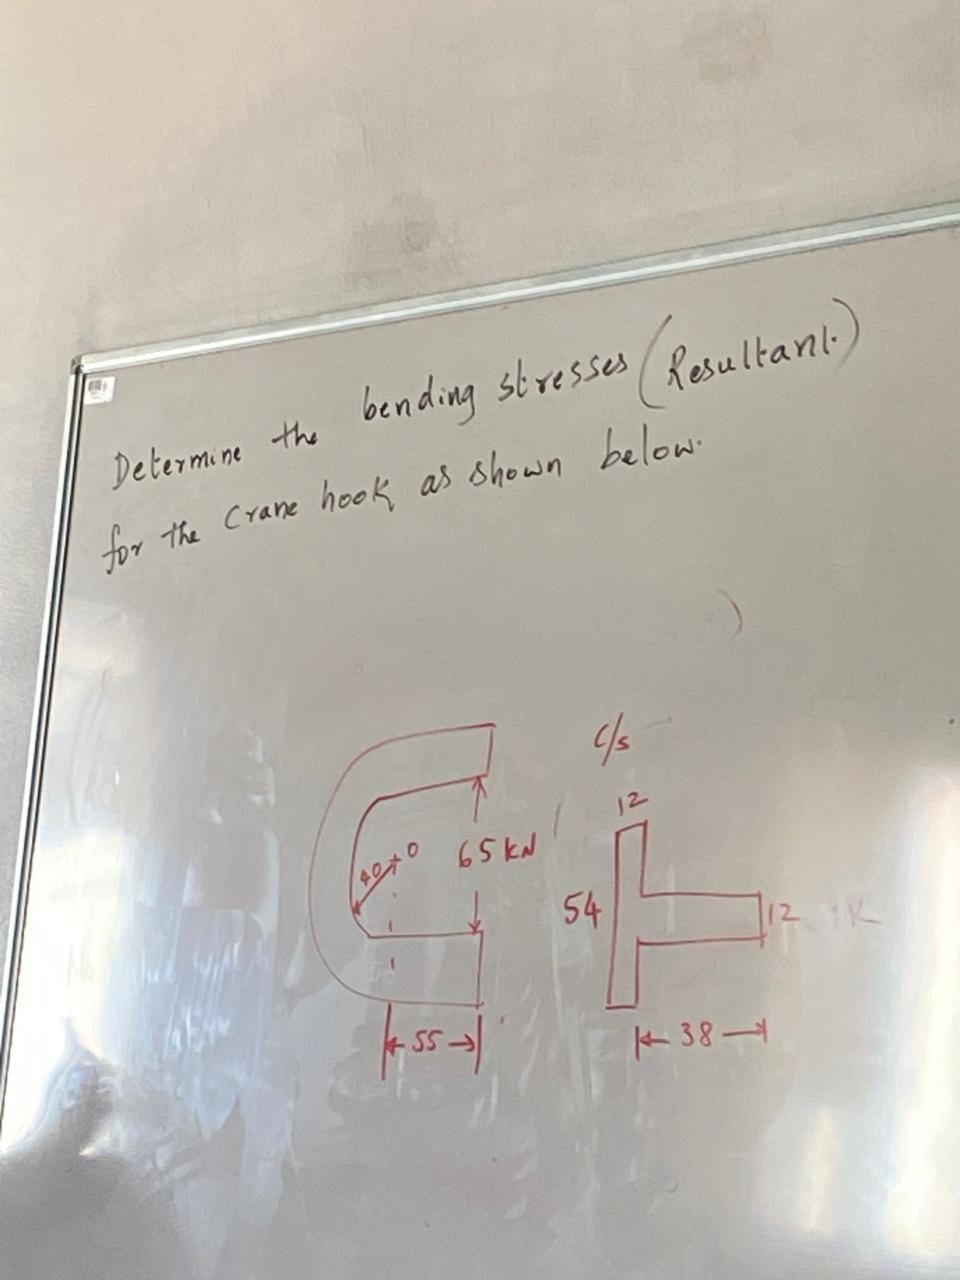 Determine the bending stresses (Resultant.)
for the Crane hook as shown below.
c/s
12
40
O
65 KN
54
12
55
38